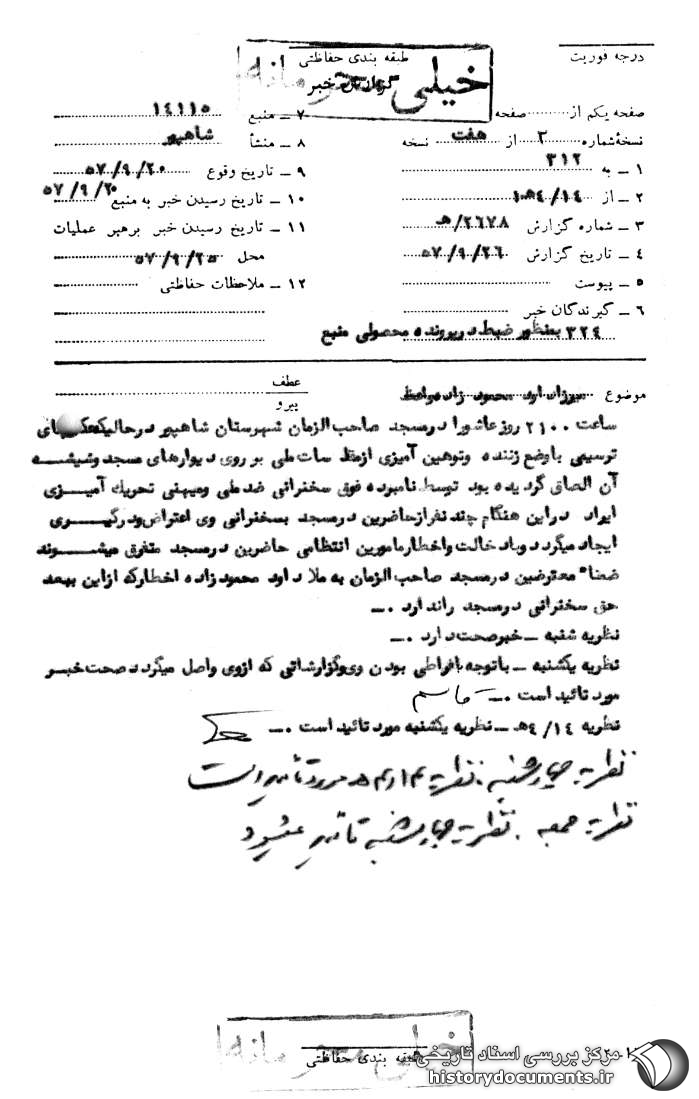 طبقه بندی حفاظتی
خیلی محرمانه
گزارش خبر
درجه فوریت
صفحه یکم از صفحه
نسخهٔ شماره ۲ از هفت نسخه
۱ – به ۳۱۲
۲ – از ۱۴/ه‍۴
۳ – شماره گزارش ۲۶۷۸/ه‍
۴ – تاریخ گزارش ۵۷/۹/۲۶
۵ – پیوست
۶ – گیرندگان خبر
۳۲۴ بمنظور ضبط در پرونده محصولی منبع
۷ – منبع ۱۴۱۱۵
۸ – منشأ شاهپور
۹ – تاریخ وقوع ۵۷/۹/۲۰
۱۰ – تاریخ رسیدن خبر به منبع ۵۷/۹/۲۰
۱۱ – تاریخ رسیدن خبر برهبر عملیات
محل ۵۷/۹/۲۵
۱۲ – ملاحظات حفاظتی
موضوع میرزاداود محمود زاده واعظ
عطف
پیرو
ساعت ۲۱۰۰ روز عاشورا در مسجد صاحب الزمان شهرستان شاهپور در حالیکه عکسهای
ترسیمی با وضع زننده وتوهین آمیزی از مقامات ملی بر روی دیوارهای مسجد وشیشه
آن الصاق گردیده بود توسط نامبرده فوق سخنرانی ضد ملی ومیهنی تحریک آمیزی
ایراد در این هنگام چند نفر از حاضرین در مسجد بسخنرانی وی اعتراض ودرگیری
ایجاد میگردد وبا دخالت واخطار مامورین انتظامی حاضرین در مسجد متفرق میشوند
ضمناً معترضین در مسجد صاحب الزمان به ملا داود محمود زاده اخطار که از این ببعد
حق سخنرانی در مسجد را ندارد .–
نظریه شنبه – خبر صحت دارد .–
نظریه یکشنبه – با توجه بافراطی بودن وی وگزارشاتی که از وی واصل میگردد صحت خبر
مورد تائید است .– جاسم
نظریه ۱۴/ه‍۴ – نظریه یکشنبه مورد تائید است .–
نظریه چهارشنبه . نظریه ۱۴/ه‍۴ مورد تأیید است
نظریه جمعه . نظریه چهارشنبه تائید میشود
خیلی محرمانه
طبقه بندی حفاظتی
مرکز بررسی اسناد تاریخی
historydocuments.ir